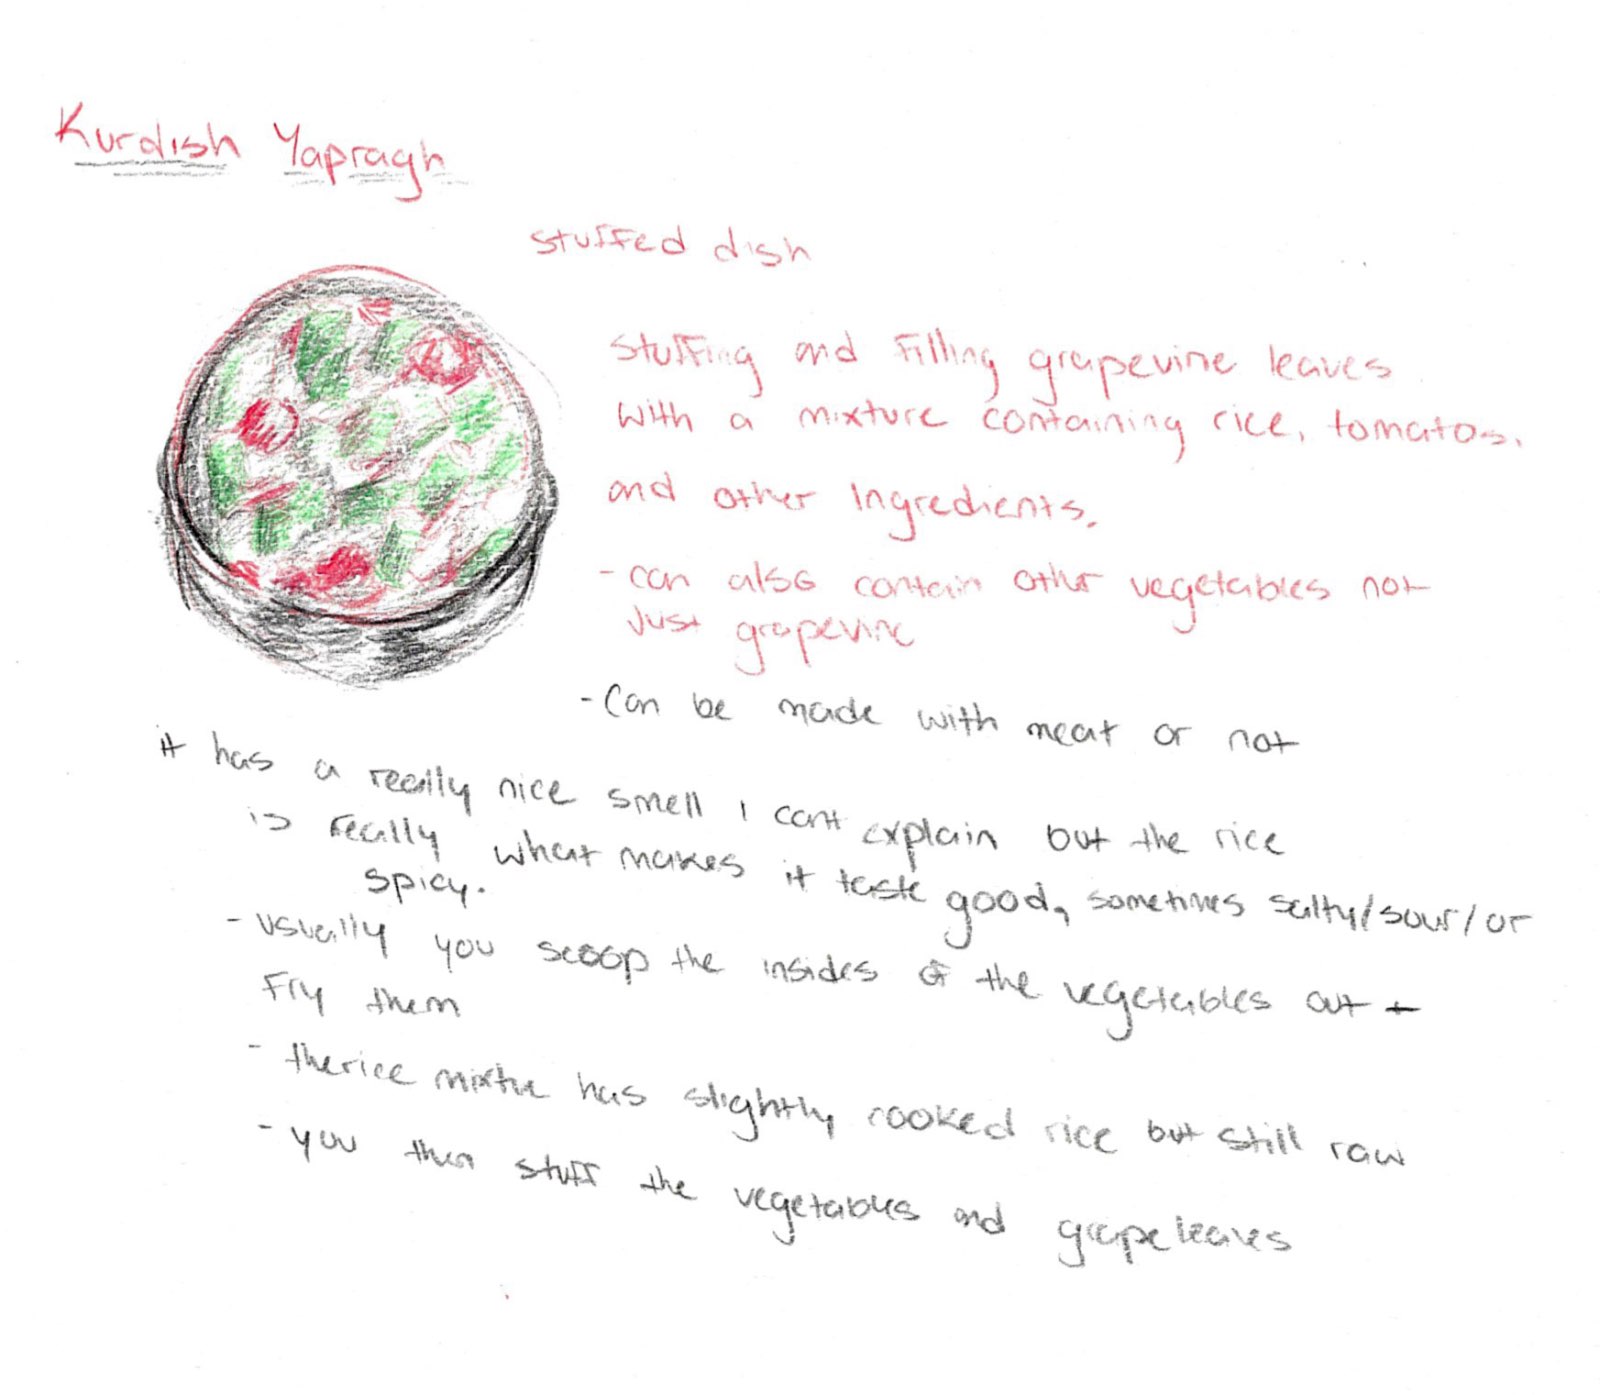 Kurdish Yapragh
stuffed dish
stuffing and filling grapevine leaves
with a mixture containing rice, tomatos,
and other Ingredients.
- can also contain other vegetables not
just grapevine
- Can be made with meat or not
it has a really nice smell I cant explain but the rice
is really what makes it taste good, sometimes salty/sour/or
spicy.
- usually you scoop the insides of the vegetables out +
Fry them
- the rice mixtue has slightly cooked rice but still raw
- you then stuff the vegetables and grape leaves